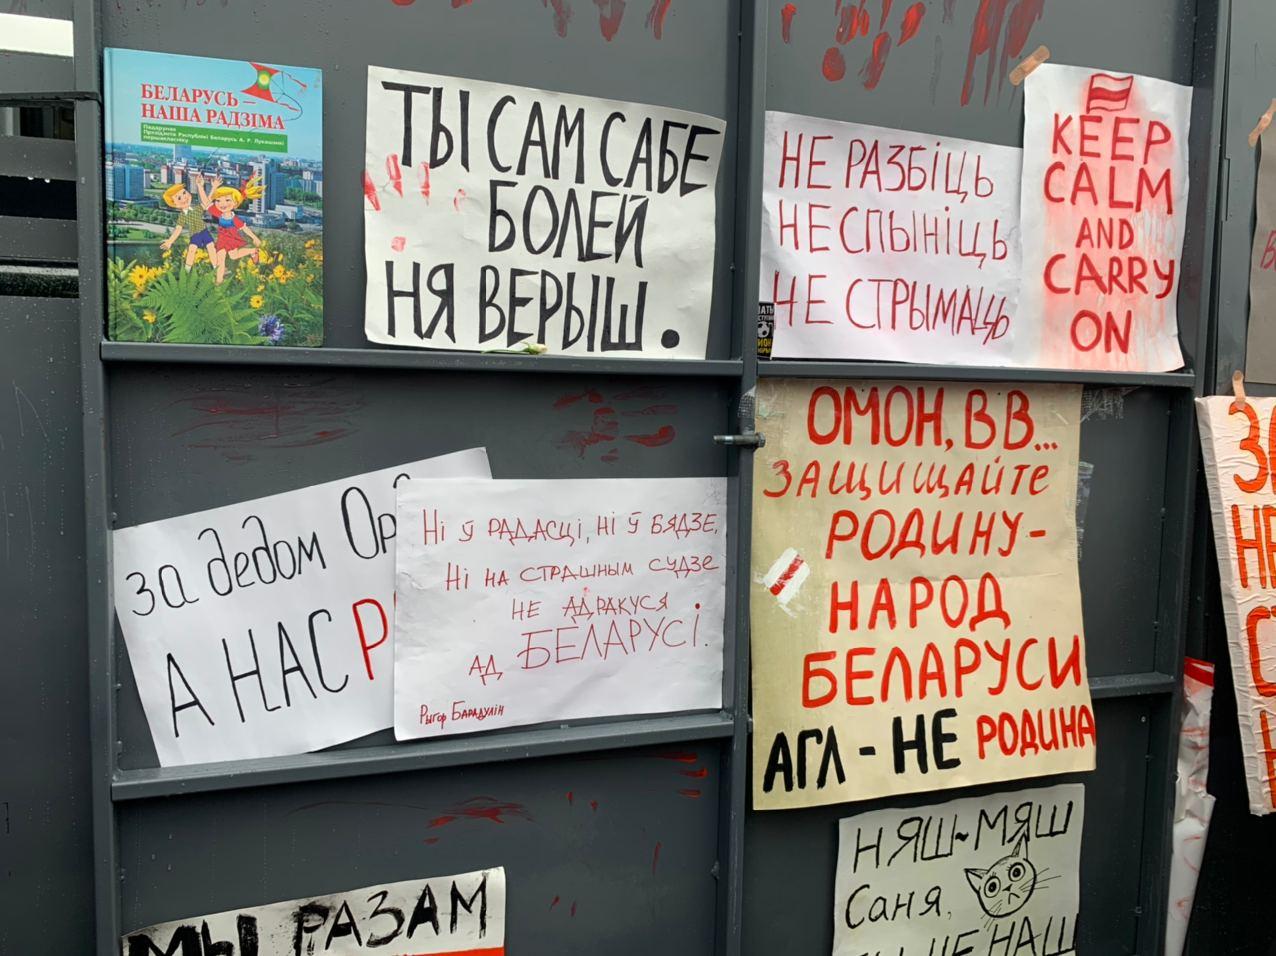 БЕЛАРУСЬ —
НАША РАДЗІМА
Падарунак
Прэзідэнта Рэспублікі Беларусь А. Р. Лукашэнкі
першакласніку
ТЫ САМ САБЕ
БОЛЕЙ
НЯ ВЕРЫШ.
НЕ РАЗБІЦЬ
НЕ СПЫНІЦЬ
НЕ СТРЫМАЦЬ
KEEP
CALM
AND
CARRY
ON
за дедом
А НАС
Ні ў РАДАСЦІ, НІ Ў БЯДЗЕ,
НІ НА СТРАШНЫМ СУДЗЕ
НЕ АДРАКУСЯ
АД БЕЛАРУСІ.
Рыгор Барадулін
ОМОН, ВВ...
ЗАЩИЩАЙТЕ
РОДИНУ -
НАРОД
БЕЛАРУСИ
АГЛ - НЕ РОДИНА
МЫ РАЗАМ
НЯШ-МЯШ
Саня,
ТЫ НЕ НАШ